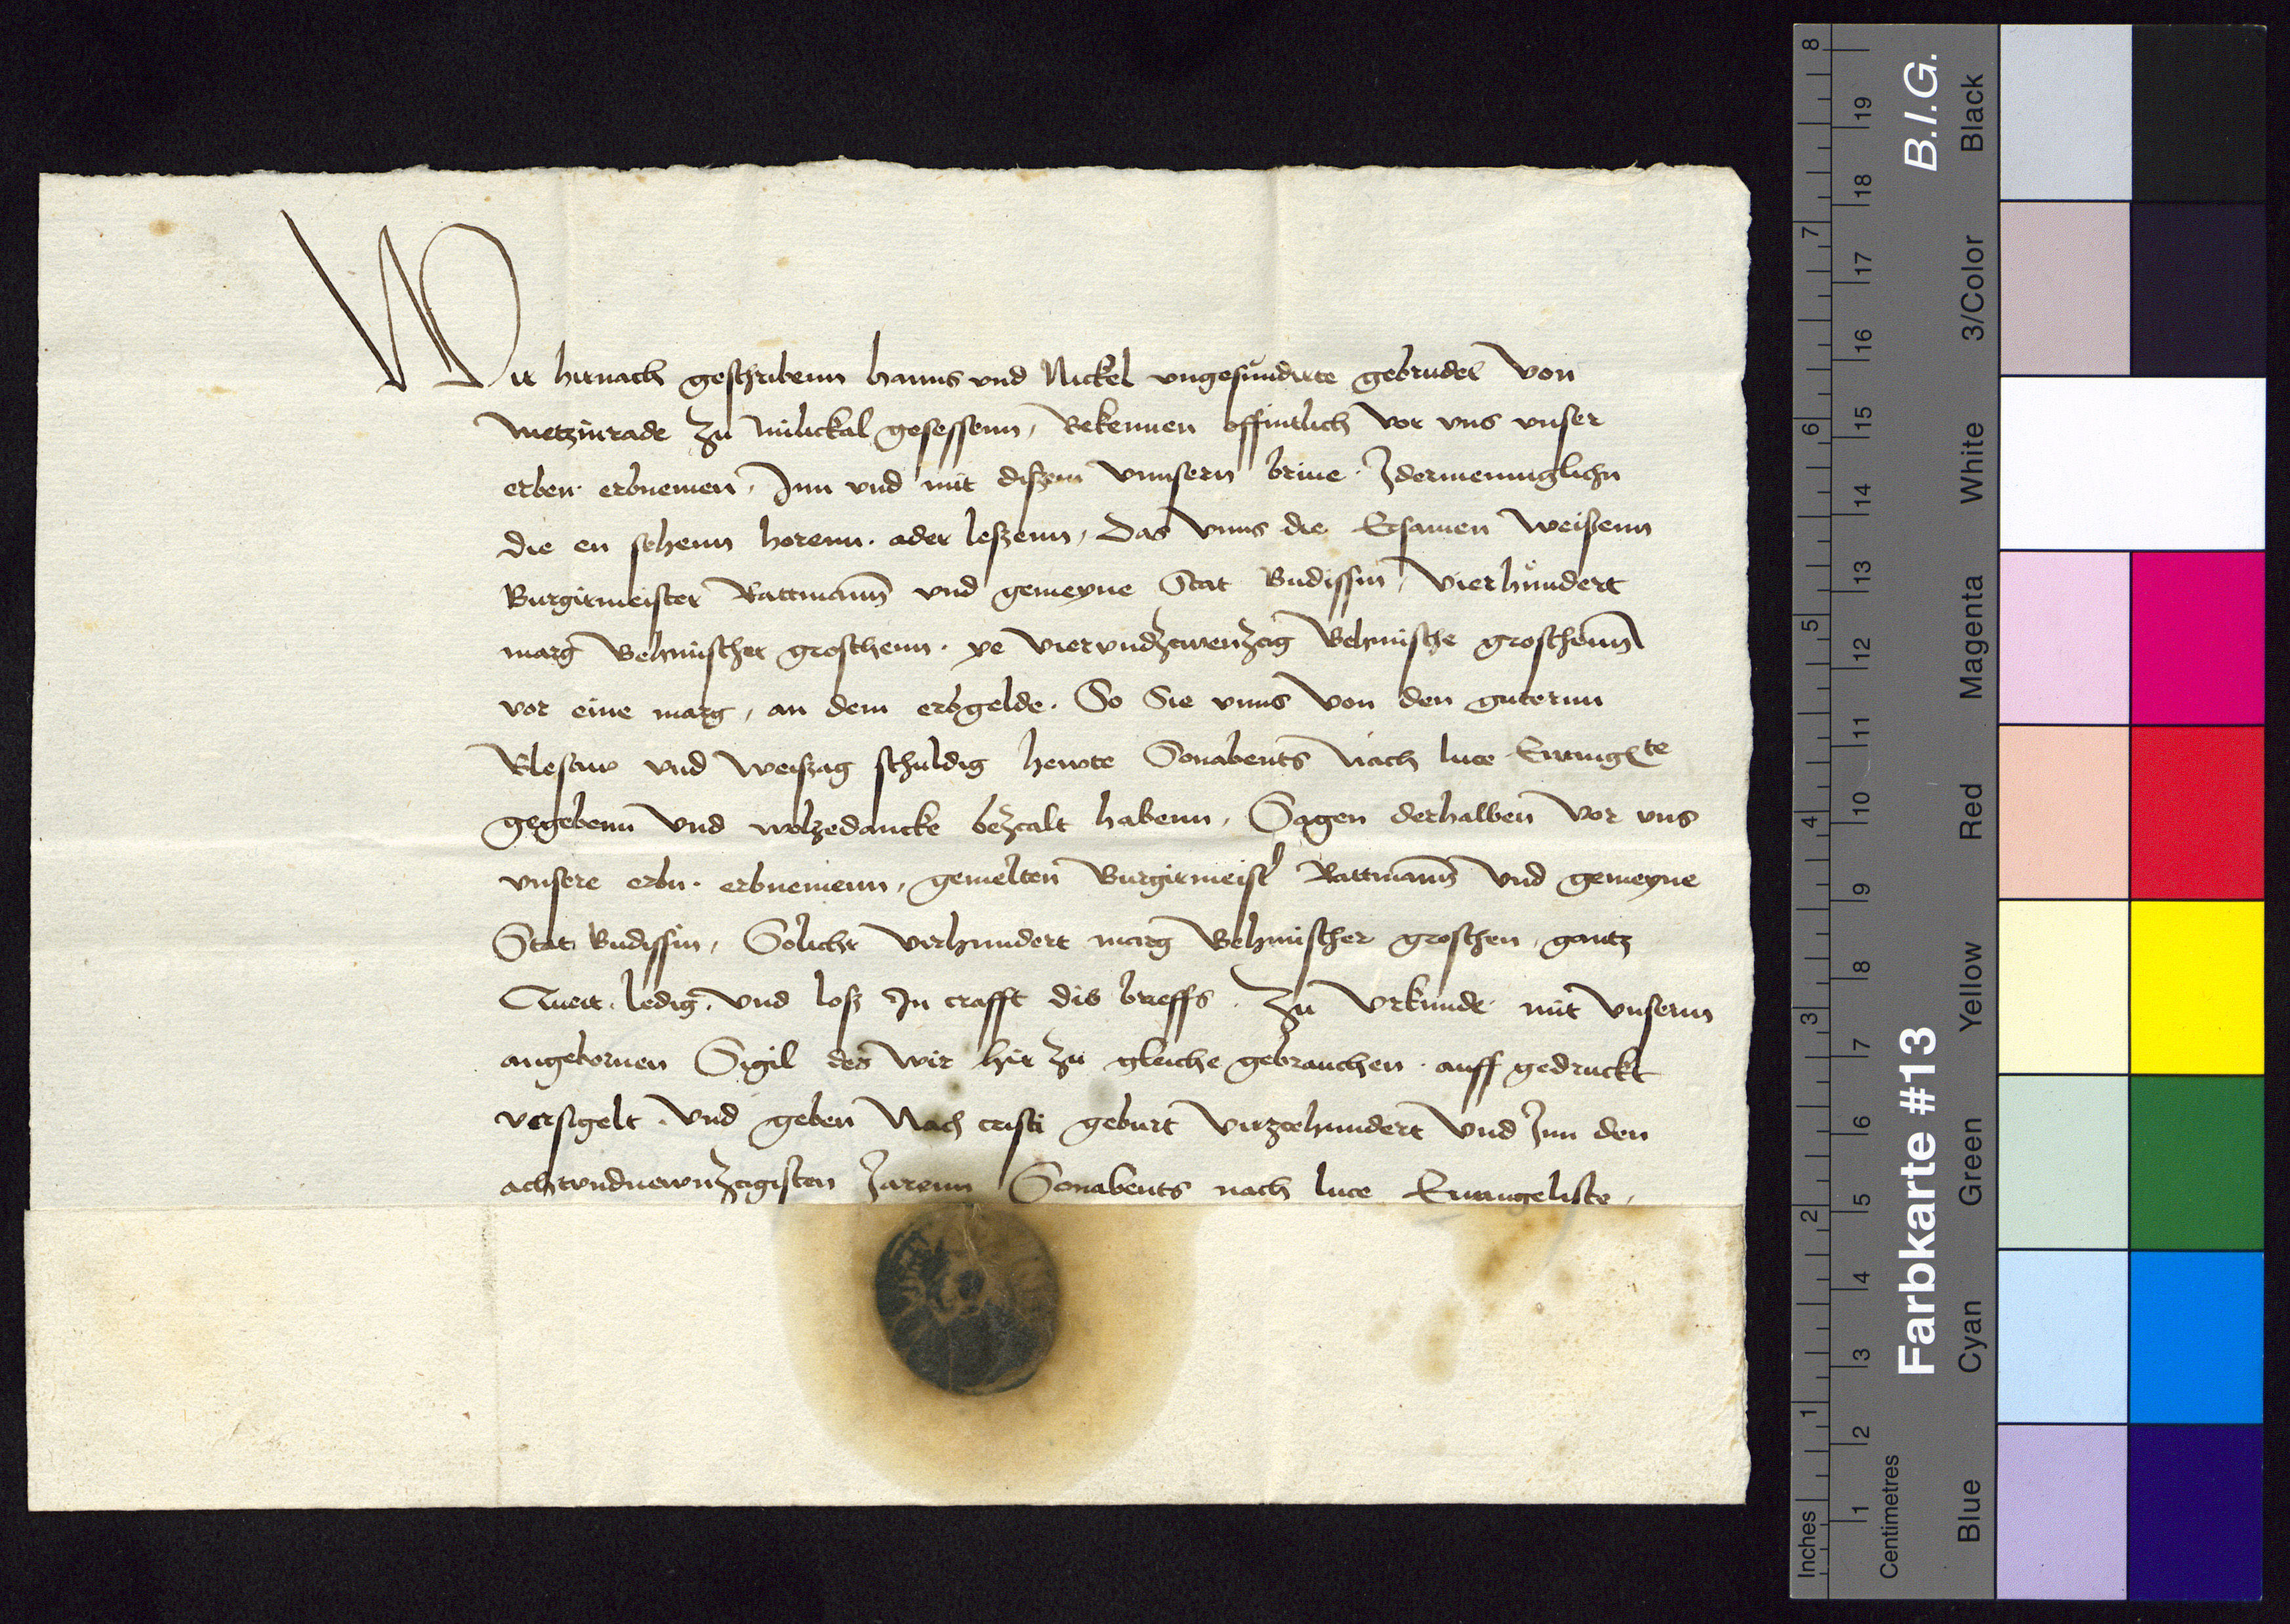 Wir hirnach geschribenn hanns vnd Nickel vngesundirte gebruder von
Metzinrade zu milickal gesessenn, Bekennen offintlich vor vns vnser
erben erbnemen, Jnn vnd mit diszem vnnsern briue. Jdermenniglichn
die en sehenn horenn. ader leszenn, Das vnns die Ersamen weiszenn
Burgirmeister Rattmann vnd gemeyne Stat Budissin, vierhundert
marg Behmischer groschenn. ye viervndzwenzig Behmische groschenn
vor eine marg, an dem erbgelde. So Sie vnns von den guternn
Blesaw vnd weiszag schuldig hewte Sonabents nach luce Ewangte
gegebenn vnd wolzedancke bezcalt habenn, Sagen derhalben vor vns
vnsere erbn. erbnemenn, gemelten Burgirmeist Rattmann vnd gemeyne
Stat Budissin, Soliche virhundert marg Behmischer groschen, gantz
Qweit. ledig. vnd losz Jn crafft dis brieffs. Zu vrkunde mit vnserm
angebornen Sigil des wir hir zu gleiche gebrauchen. auff gedruckt
versigelt. vnd geben Nach cristi geburt virzcehundert vnd Jnn den
achtvndnewnzcigisten Jarenn Sonabents nach luce Ewangeliste,
Inches
1 2 3 4 5 6 7 8
Centimetres
1 2 3 4 5 6 7 8 9 10 11 12 13 14 15 16 17 18 19
Farbkarte #13
B.I.G.
Blue Cyan Green Yellow Red Magenta White 3/Color Black